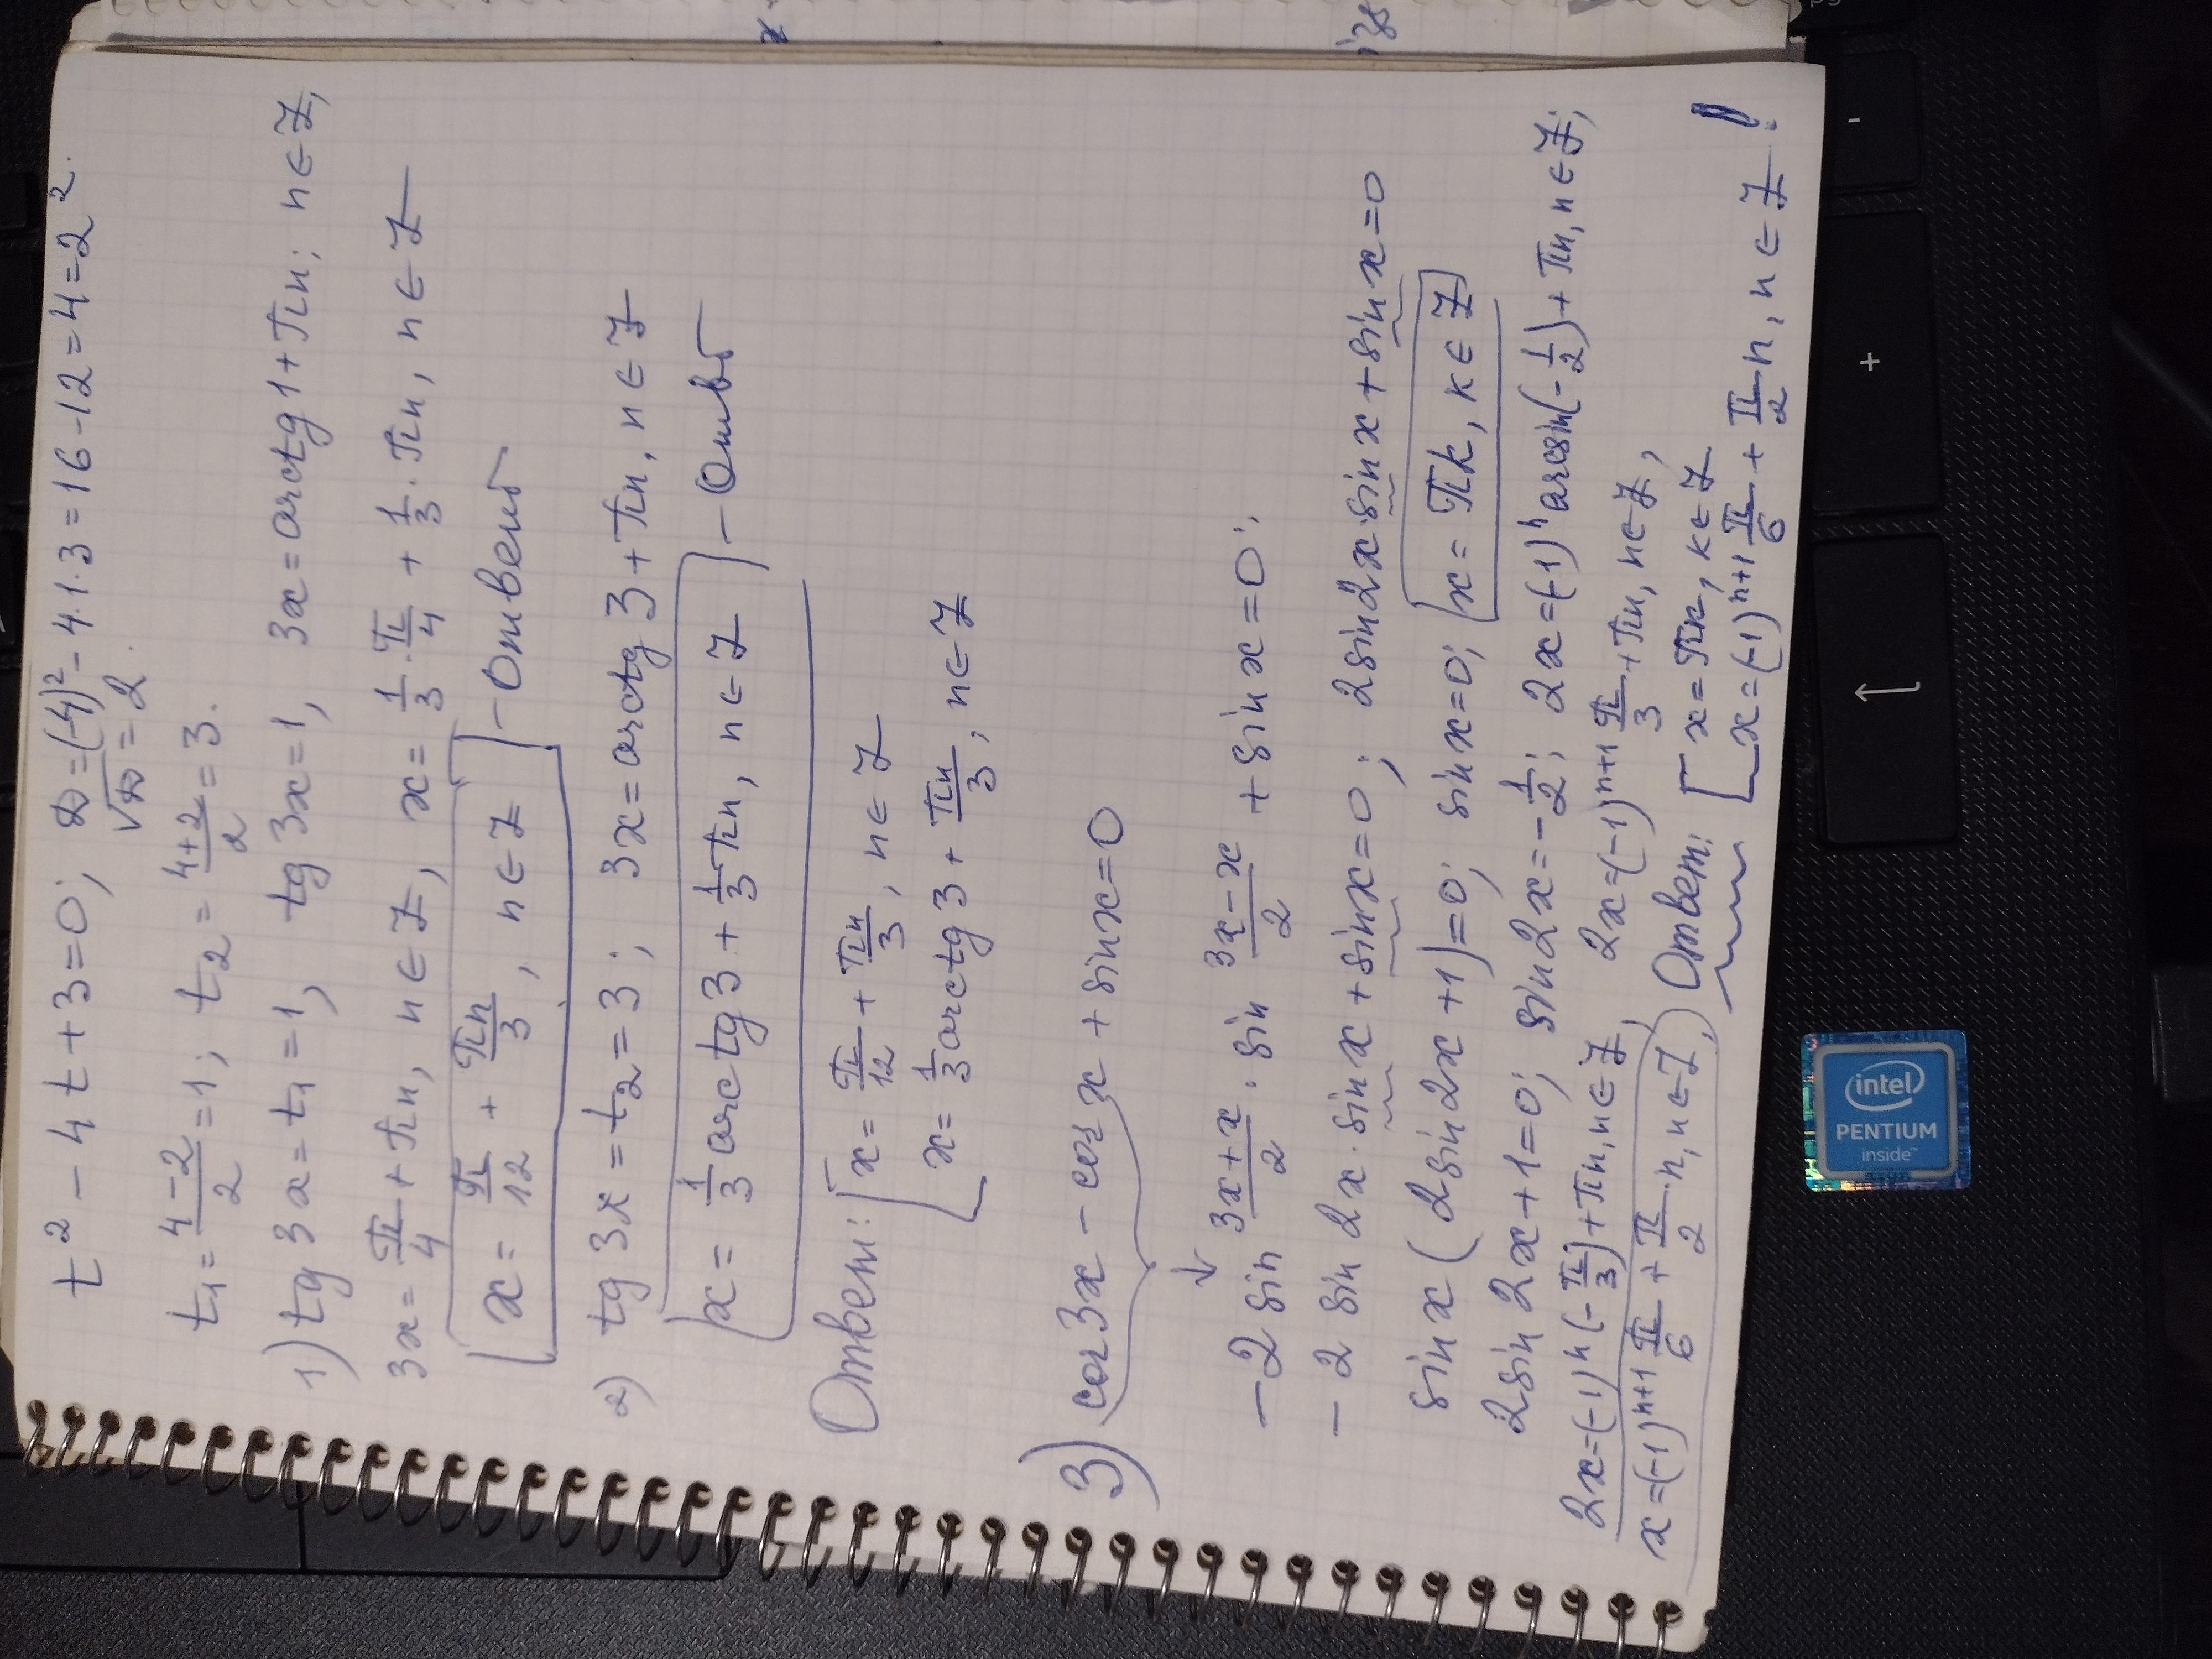 t² - 4t + 3 = 0; D = (-4)² - 4·1·3 = 16 - 12 = 4 = 2².
√D = 2.
t₁ = (4-2)/2 = 1; t₂ = (4+2)/2 = 3.
1) tg 3x = t₁ = 1, tg 3x = 1, 3x = arctg 1 + πn; n ∈ Z,
3x = π/4 + πn, n ∈ Z, x = 1/3 · π/4 + 1/3 · πn, n ∈ Z
x = π/12 + πn/3, n ∈ Z - Ответ
2) tg 3x = t₂ = 3; 3x = arctg 3 + πn, n ∈ Z
x = 1/3 arctg 3 + 1/3 πn, n ∈ Z - Ответ
Ответ: [ x = π/12 + πn/3, n ∈ Z
x = 1/3 arctg 3 + πn/3, n ∈ Z
3) cos 3x - cos x + sin x = 0
-2 sin (3x+x)/2 · sin (3x-x)/2 + sin x = 0;
-2 sin 2x · sin x + sin x = 0; 2 sin 2x · sin x + sin x = 0
sin x (2 sin 2x + 1) = 0; sin x = 0; x = πk, k ∈ Z
2 sin 2x + 1 = 0; sin 2x = -1/2; 2x = (-1)ⁿ arcsin(-1/2) + πn, n ∈ Z;
2x = (-1)ⁿ (-π/3) + πn, n ∈ Z, 2x = (-1)ⁿ⁺¹ π/3 + πn, n ∈ Z,
x = (-1)ⁿ⁺¹ π/6 + π/2 n, n ∈ Z, Ответ: [ x = πk, k ∈ Z
x = (-1)ⁿ⁺¹ π/6 + π/2 n, n ∈ Z !
intel
PENTIUM
inside™
+
-